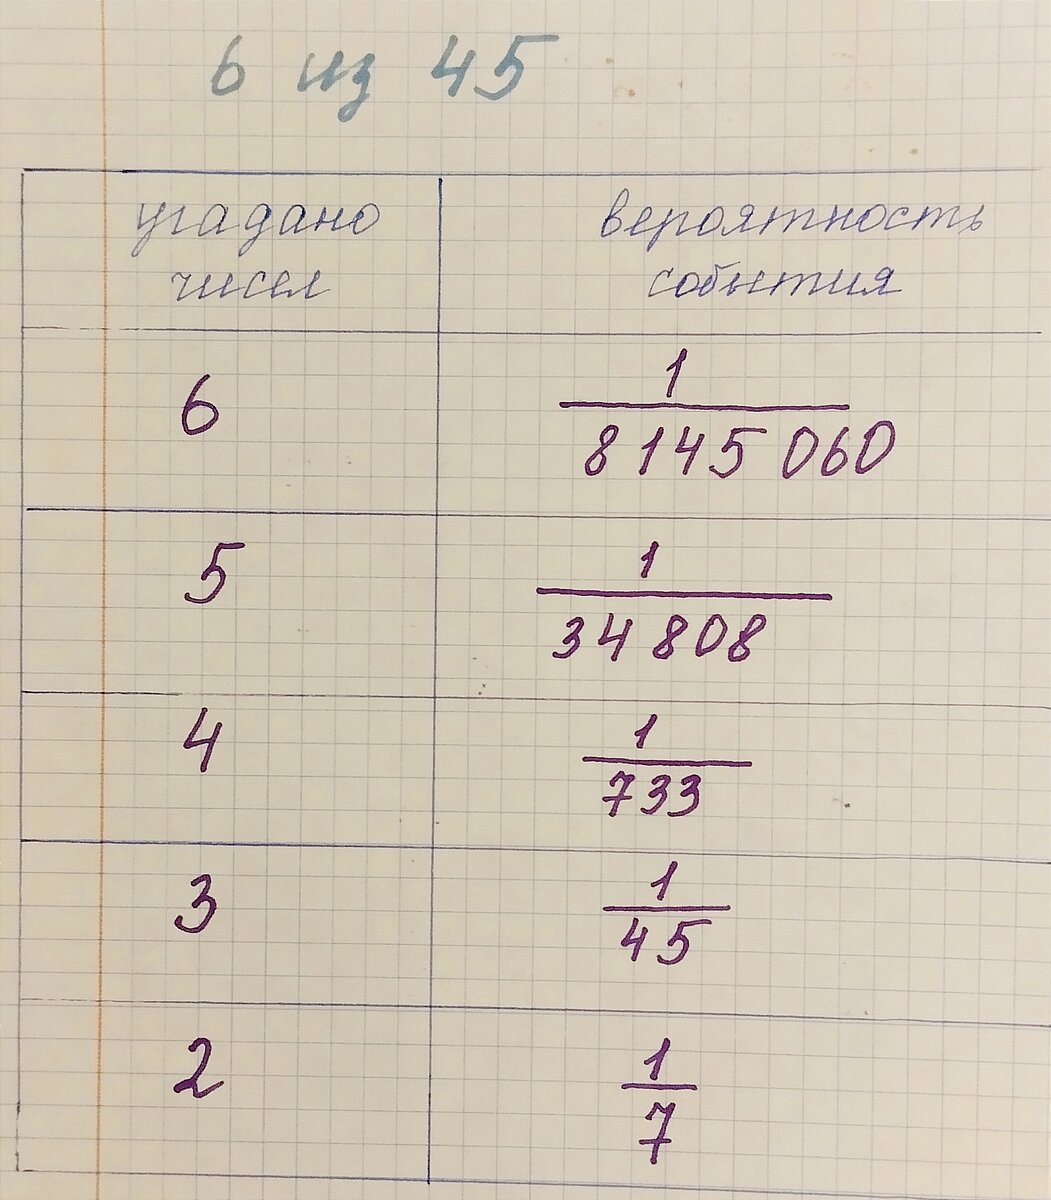 6 из 45
угадано чисел
вероятность события
6
1
8 145 060
5
1
34 808
4
1
733
3
1
45
2
1
7